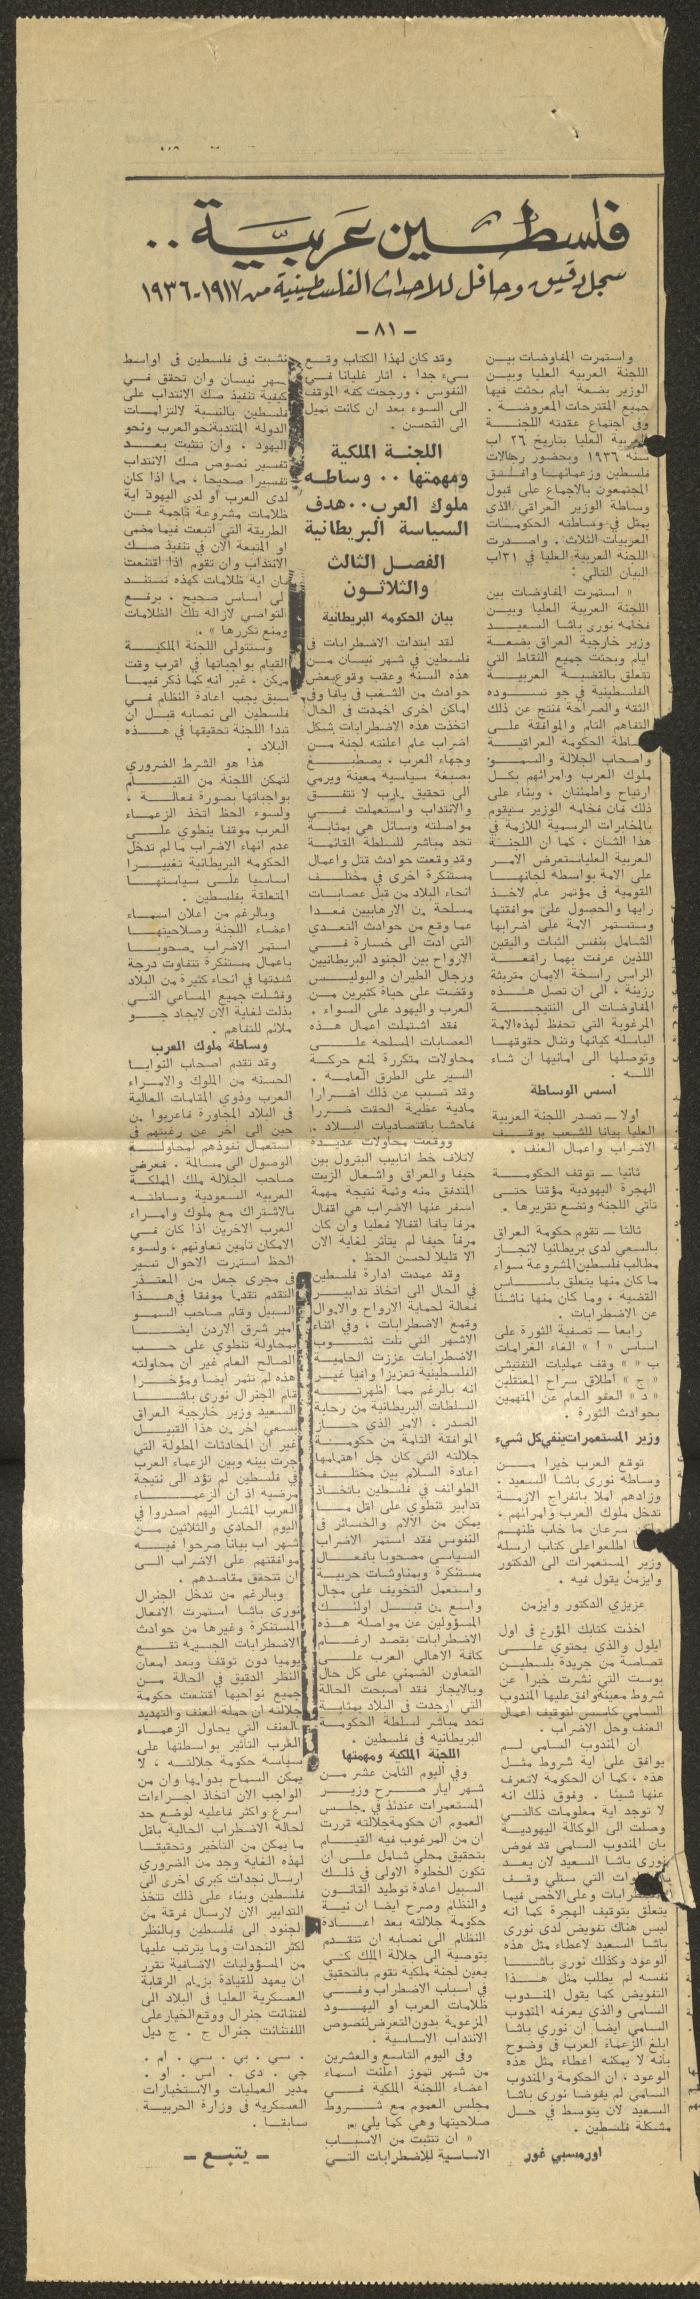 فلسطين عربية ..
سجل دقيق وحافل للاحداث الفلسطينية من ١٩١٧-١٩٣٦
- ٨١ -
واستمرت المفاوضات بين
اللجنة العربية العليا وبين
الوزير بضعة ايام بحثت فيها
جميع المقترحات المعروضة .
وفي اجتماع عقدته اللجنة
العربية العليا بتاريخ ٢٦ اب
سنة ١٩٣٦ وبحضور رجالات
فلسطين وزعمائها وافق
المجتمعون بالاجماع على قبول
وساطة الوزير العراقي الذي
يمثل في وساطته الحكومات
العربيات الثلاث . واصدرت
اللجنة العربية العليا في ٣١اب
البيان التالي :
« استمرت المفاوضات بين
اللجنة العربية العليا وبين
فخامه نورى باشا السعيد
وزير خارجية العراق بضعة
ايام وبحثت جميع النقاط التي
تتعلق بالقضية العربية
الفلسطينية في جو تسوده
الثقه والصراحة فنتج عن ذلك
التفاهم التام والموافقة على
وساطة الحكومه العراقية
واصحاب الجلالة والسمو
ملوك العرب وامرائهم بكل
ارتياح واطمئنان ، وبناء على
ذلك فان فخامه الوزير سيقوم
بالمخابرات الرسمية اللازمة في
هذا الشان ، كما ان اللجنة
العربية العلياستعرض الامر
على الامة بواسطة لجانها
القومية في مؤتمر عام لاخذ
رايها والحصول على موافقتها
وستستمر الامة على اضرابها
الشامل بنفس الثبات واليقين
اللذين عرفت بهما رافعة
الراس راسخة الايمان متريثة
رزينة ، الى ان تصل هذه
المفاوضات الى النتيجة
المرغوبة التي تحفظ لهذهالامة
الباسله كيانها وتنال حقوقها
وتوصلها الى امانيها ان شاء
الله .
اسس الوساطة
اولا ــ تصدر اللجنة العربية
العليا بيانا للشعب بوقف
الاضراب واعمال العنف .
ثانيا ــ توقف الحكومة
الهجرة اليهودية مؤقتا حتى
تأتي اللجنه وتضع تقريرها .
ثالثا ــ تقوم حكومة العراق
بالسعي لدى بريطانيا لانجاز
مطالب فلسطينالمشروعة سواء
ما كان منها يتعلق باساس
القضيه ، وما كان منها ناشئا
عن الاضطرابات .
رابعا ــ تصفية الثورة على
اساس « ا » الغاء الغرامات
ب « » وقف عمليات التفتيش
« ج » اطلاق سراح المعتقلين
« د » العفو العام عن المتهمين
بحوادث الثورة .
وزير المستعمراتينفيكل شيء
توقع العرب خيرا من
وساطه نورى باشا السعيد .
وزادهم املا بانفراج الازمة
تدخل ملوك العرب وامرائهم ،
سرعان ما خاب ظنهم
اطلعواعلى كتاب ارسله
وزير المستعمرات الى الدكتور
وايزمن يقول فيه .
عزيزي الدكتور وايزمن
اخذت كتابك المؤرخ في اول
ايلول والذي يحتوي على
قصاصة من جريدة بلسطين
بوست التي نشرت خبرا عن
شروط معينةوافقعليها المندوب
السامي كاسس لتوقيف اعمال
العنف وحل الاضراب .
ان المندوب السامي لم
يوافق على اية شروط مثل
هذه ، كما ان الحكومة لاتعرف
عنها شيئا . وفوق ذلك انه
لا توجد اية معلومات كالتي
وصلت الى الوكالة اليهودية
بان المندوب السامي قد فوض
نورى باشا السعيد لان يعد
التي ستلي وقف
وعلىالاخص فيما
يتعلق بتوقيف الهجرة كما انه
ليس هناك تفويض لدى نورى
باشا السعيد لاعطاء مثل هذه
الوعود وكذلك نورى باشا
نفسه لم يطلب مثل هذا
التفويض كما يقول المندوب
السامي والذي يعرفه المندوب
السامي ايضا ان نوري باشا
ابلغ الزعماء العرب في وضوح
بأنه لا يمكنه اعطاء مثل هذه
الوعود ، ان الحكومة والمندوب
السامي لم يفوضا نورى باشا
السعيد لان يتوسط في حل
مشكلة فلسطين .
اورمسبي غور
وقد كان لهذا الكتاب وقع
سيء جدا ، اثار غليانا في
النفوس ، ورجحت كفة الموقف
الى السوء بعد ان كانت تميل
الى التحسن .
اللجنة الملكية
ومهمتها .. وساطه
ملوك العرب..هدف
السياسة البريطانية
الفصل الثالث
والثلاثون
بيان الحكومه البريطانية
لقد ابتدات الاضطرابات في
فلسطين في شهر نيسان من
هذه السنة وعقب وقوعبعض
حوادث من الشغب في يافا وفي
اماكن اخرى اخمدت في الحال
اتخذت هذه الاضطرابات شكل
اضراب عام اعلنته لجنة من
وجهاء العرب ، يصطبغ
بصبغة سياسية معينة ويرمي
الى تحقيق مارب لا تتفق
والانتداب واستعملت في
مواصلته وسائل هي بمثابة
تحد مباشر للسلطة القائمة
وقد وقعت حوادث قتل واعمال
مستنكرة اخرى في مختلف
انحاء البلاد من قبل عصابات
مسلحة من الارهابيين فعدا
عما وقع من حوادث التعدي
التي ادت الى خسارة في
الارواح بين الجنود البريطانيين
ورجال الطيران والبوليس
وقضت على حياة كثيرين من
العرب واليهود على السواء .
فقد اشتملت اعمال هذه
العصابات المسلحة على
محاولات متكررة لمنع حركة
السير على الطرق العامة .
وقد تسبب عن ذلك اضرارا
مادية عظيمة الحقت ضررا
فاحشا باقتصاديات البلاد .
ووقعت محاولات عديدة
لاتلاف خط انابيب البترول بين
حيفا والعراق واشعال الزيت
المتدفق منه وثمة نتيجة مهمة
اسفر عنها الاضراب هي اقفال
مرفأ يافا اقفالا فعليا وان كان
مرفأ حيفا لم يتأثر لغاية الان
الا قليلا لحسن الحظ .
وقد عمدت ادارة فلسطين
في الحال الى اتخاذ تدابير
فعالة لحماية الارواح والاموال
وقمع الاضطرابات ، وفي اثناء
الاشهر التي تلت نشوب
الاضطرابات عززت الحامية
الفلسطينية تعزيزا وافيا غير
انه بالرغم مما اظهرته
السلطات البريطانية من رحابة
الصدر ، الامر الذي حاز
الموافقة التامة من حكومة
جلالته التي كان جل اهتمامها
اعادة السلام بين مختلف
الطوائف في فلسطين باتخاذ
تدابير تنطوي على اقل ما
يمكن من الآلام والخسائر في
النفوس فقد استمر الاضراب
السياسي مصحوبا بافعال
مستنكرة وبمناوشات حربية
واستعمل التخويف على مجال
واسع من قبل اولئك
المسؤولين عن مواصله هذه
الاضطرابات بقصد ارغام
كافة الاهالي العرب على
التعاون الضمني على كل حال
وبالايجاز فقد اصبحت الحالة
التي اوجدت في البلاد بمثابة
تحد مباشر لسلطة الحكومة
البريطانيه في فلسطين .
اللجنة الملكية ومهمتها
وفي اليوم الثامن عشر من
شهر ايار صرح وزير
المستعمرات عندئذ في مجلس
العموم ان حكومةجلالته قررت
ان من المرغوب فيه القيام
بتحقيق محلي شامل على ان
تكون الخطوة الاولى في ذلك
السبيل اعادة توطيد القانون
والنظام وصرح ايضا ان نية
حكومة جلالته بعد اعادة
النظام الى نصابه ان تتقدم
بتوصية الى جلالة الملك كي
يعين لجنة ملكية تقوم بالتحقيق
في اسباب الاضطراب وفي
ظلامات العرب او اليهود
المزعومة بدون التعرضلنصوص
الانتداب الاساسية .
وفي اليوم التاسع والعشرين
من شهر تموز اعلنت اسماء
اعضاء اللجنة الملكية في
مجلس العموم مع شروط
صلاحيتها وهي كما يلي :
« ان تتثبت من الاسباب
الاساسية للاضطرابات التي
نشبت في فلسطين في اواسط
شهر نيسان وان تحقق في
كيفية تنفيذ صك الانتداب على
فلسطين بالنسبة لالتزامات
الدولة المنتدبةنحوالعرب ونحو
اليهود ، وأن تتثبت بعد
تفسير نصوص صك الانتداب
تفسيرا صحيحا ، مما اذا كان
لدى العرب او لدى اليهود اية
ظلامات مشروعة ناجمة عن
الطريقة التي اتبعت فيما مضى
او المتبعة الان في تنفيذ صك
الانتداب وان تقوم اذا اقتنعت
بان اية ظلامات كهذه تستند
لى أساس صحيح ، برفع
التواصي لازاله تلك الظلامات
ومنع تكررها » .
وستتولى اللجنة الملكية
القيام بواجباتها في اقرب وقت
ممكن ، غير انه كما ذكر فيما
سبق يجب اعادة النظام في
فلسطين الى نصابه قبل ان
تبدأ اللجنة تحقيقها في هذه
البلاد .
هذا هو الشرط الضروري
لتمكن اللجنة من القيام
بواجباتها بصورة فعالة ،
ولسوء الحظ اتخذ الزعماء
العرب موقفا ينطوي على
عدم انهاء الاضراب ما لم تدخل
الحكومه البريطانية تغييرا
اساسيا على سياستها
المتعلقة بفلسطين .
وبالرغم من اعلان اسماء
اعضاء اللجنة وصلاحيتها
استمر الاضراب مصحوبا
باعمال مستنكرة تتفاوت درجة
شدتها في انحاء كثيرة من البلاد
وفشلت جميع المساعي التي
بذلت لغاية الان لايجاد جو
ملائم للتفاهم .
وساطة ملوك العرب
وقد تقدم اصحاب النوايا
الحسنه من الملوك والامراء
العرب وذوي المقامات العالية
في البلاد المجاورة فاعربوا من
حين الى اخر عن رغبتهم في
استعمال نفوذهم لمحاولة
الوصول الى مسالمة . فعرض
صاحب الجلالة ملك المملكة
العربيه السعودية وساطته
بالاشتراك مع ملوك وامراء
العرب الاخرين اذا كان في
الامكان تأمين تعاونهم ، ولسوء
الحظ استمرت الاحوال تسير
في مجرى جعل من المعتذر
التقدم تقدما موفقا فيهذا
السبيل وقام صاحب السمو
امير شرق الاردن ايضا
بمحاولة تنطوي على حب
الصالح العام غير ان محاولته
هذه لم تثمر ايضا ومؤخرا
قام الجنرال نورى باشا
السعيد وزير خارجية العراق
بسعي اخر من هذا القبيل
غير ان المحادثات المطولة التي
جرت بينه وبين الزعماء العرب
في فلسطين لم تؤد الى نتيجة
مرضيه اذ ان الزعماء
العرب المشار اليهم اصدروا في
اليوم الحادي والثلاثين من
شهر اب بيانا صرحوا فيه
موافقتهم على الاضراب الى
ان تتحقق مقاصدهم .
وبالرغم من تدخل الجنرال
نورى باشا استمرت الافعال
المستنكرة وغيرها من حوادث
الاضطرابات الجسيمه تقع
يوميا دون توقف وبعد امعان
النظر الدقيق في الحالة من
جميع نواحيها اقتنعت حكومة
جلالته ان حملة العنف والتهديد
بالعنف التي يحاول الزعماء
العرب التأثير بواسطتها على
سياسة حكومة جلالته ، لا
يمكن السماح بدوامها وان من
الواجب الان اتخاذ اجراءات
اسرع واكثر فاعليه لوضع حد
لحاله الاضطراب الحالية باقل
ما يمكن من التأخير وتحقيقا
لهذه الغاية وجد من الضروري
ارسال نجدات كبرى اخرى الى
فلسطين وبناء على ذلك تتخذ
التدابير الان لارسال فرقة من
الجنود الى فلسطين وبالنظر
لكثر النجدات وما يترتب عليها
من المسؤوليات الاضافية تقرر
ان يعهد للقيادة بزمام الرقابة
العسكرية العليا في البلاد الى
لفتنانت جنرال ووقعالخيارعلى
اللفتنانت جنرال ج . ج ديل
. سي . بي . سي . ام .
جي . دي . اس . او .
مدير العمليات والاستخبارات
العسكريه في وزارة الحربية
سابقا .
ــ يتبع ــ